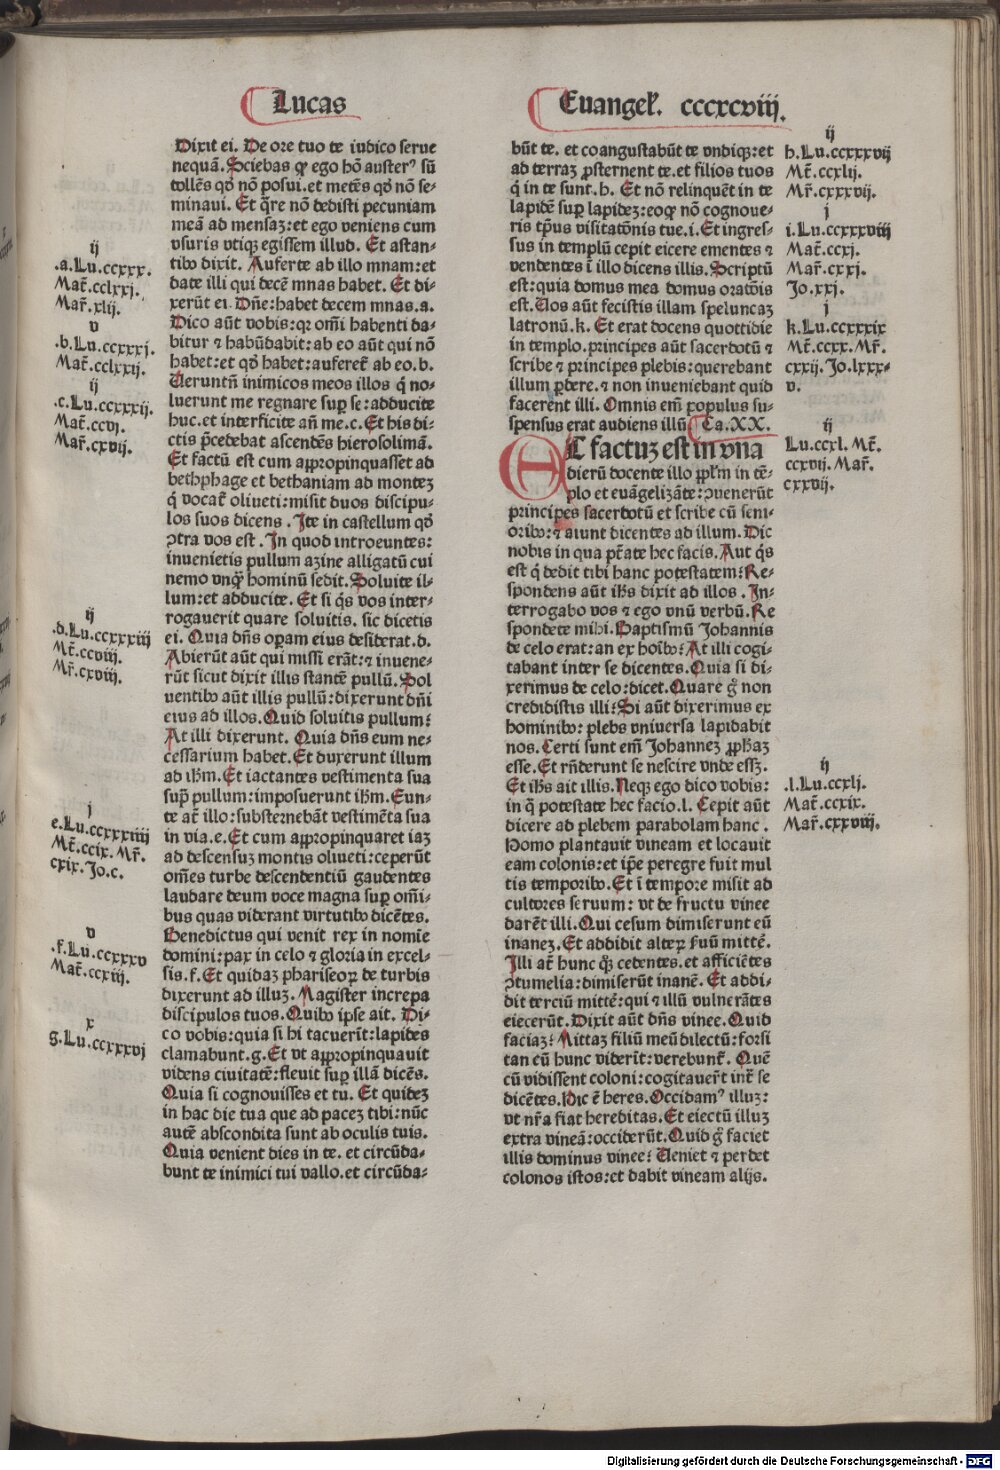 Lucas
Euangel̄. cccxcviii.
ij
.a.Lu.ccxxx.
Mat̄.cclxxj.
Mar̄.xlij.
v
.b.Lu.ccxxxj.
Mat̄.cclxxij.
ij
.c.Lu.ccxxxij.
Mat̄.ccvj.
Mar̄.cxvij.
ij
.d.Lu.ccxxxiij
Mt̄.ccviij.
Mr̄.cxviij.
j
e.Lu.ccxxxiiij
Mt̄.ccix.Mr̄.
cxix.Jo.c.
v
.f.Lu.ccxxxv
Mat̄.ccxiij.
x
g.Lu.ccxxxvj
Dixit ei. De ore tuo te iudico serue
nequā. Sciebas qꝛ ego hō austerꝰ sū
tollēs qd̓ nō posui. et metēs qd̓ nō se-
minaui. Et q̄re nō dedisti pecuniam
meā ad mensaꝫ: et ego veniens cum
vsuris vtiqꝫ egissem illud. Et astan-
tibꝰ dixit. Auferte ab illo mnam: et
date illi qui decē mnas habet. Et di-
xerūt ei. Dn̄e: habet decem mnas. a.
Dico aūt vobis: qꝛ om̄i habenti da-
bitur ⁊ habūdabit: ab eo aūt qui nō
habet: et qd̓ habet: auferet̄ ab eo. b.
Ueruntn̄ inimicos meos illos q̄ no-
luerunt me regnare suꝑ se: adducite
huc. et interficite an̄ me. c. Et his di-
ctis p̄cedebat ascendēs hierosolimā.
Et factū est cum aꝓpropinquasset ad
bethphage et bethaniam ad montez
q̄ vocat̄ oliueti: misit duos discipu-
los suos dicens. Ite in castellum qd̓
ꝯtra vos est. In quod introeuntes:
inuenietis pullum azine alligatū cui
nemo vnqꝫ hominū sedit. Soluite il-
lum: et adducite. Et si q̄s vos inter-
rogauerit quare soluitis. sic dicetis
ei. Quia dn̄s oꝑam eius desiderat. d.
Abierūt aūt qui missi erāt: ⁊ inuene-
rūt sicut dixit illis stantē pullū. Sol
uentibꝰ aūt illis pullū: dixerunt dn̄i
eius ad illos. Quid soluitis pullum:
At illi dixerunt. Quia dn̄s eum ne-
cessarium habet. Et duxerunt illum
ad ih̄m. Et iactantes vestimenta sua
sup̄ pullum: imposuerunt ih̄m. Eun-
te at̄ illo: substernebāt vestimēta sua
in via. e. Et cum aꝓpropinquaret iaꝫ
ad descensuꝫ montis oliueti: ceperūt
om̄es turbe descendentiū gaudentes
laudare deum voce magna suꝑ om̄i-
bus quas viderant virtutibꝰ dicētes.
Benedictus qui venit rex in nomīe
domini: pax in celo ⁊ gloria in excel-
sis. f. Et quidaꝫ phariseoꝝ de turbis
dixerunt ad illuꝫ. Magister increpa
discipulos tuos. Quibꝰ ipse ait. Di-
co vobis: quia si hi tacuerīt: lapides
clamabunt. g. Et vt aꝓpropinquauit
videns ciuitatē: fleuit suꝑ illā dicēs.
Quia si cognouisses et tu. Et quidez
in hac die tua que ad pacez tibi: nūc
autē abscondita sunt ab oculis tuis.
Quia venient dies in te. et circūda-
bunt te inimici tui vallo. et circūda-
būt te. et coangustabūt te vndiqꝫ: et
ad terraꝫ ꝓsternent te. et filios tuos
q̄ in te sunt. h. Et nō relinquēt in te
lapidē suꝑ lapidez: eoqꝫ nō cognoue-
ris tp̄us visitatōnis tue. i. Et ingres-
sus in templū cepit eicere ementes ⁊
vendentes ī illo dicens illis. Scriptū
est: quia domus mea domus oratōis
est. Uos aūt fecistis illam speluncaꝫ
latronū. k. Et erat docens quottidie
in templo. principes aūt sacerdotū ⁊
scribe ⁊ principes plebis: querebant
illum ꝑdere. ⁊ non inueniebant quid
facerent illi. Omnis em̄ populus su-
spensus erat audiens illū Ca.XX.
ET factuꝫ est in vna
dierū docente illo pp̄lm in tē-
plo et euāgelizāte: ꝯuenerūt
principes sacerdotū et scribe cū seni-
oribꝰ: ⁊ aiunt dicentes ad illum. Dic
nobis in qua p̄tate hec facis. Aut q̄s
est q̄ dedit tibi hanc potestatem: Re-
spondens aūt ih̄s dixit ad illos. In-
terrogabo vos ⁊ ego vnū verbū. Re
spondete mihi. Baptismū Johannis
de celo erat: an ex hoībꝰ: At illi cogi-
tabant inter se dicentes. Quia si di-
xerimus de celo: dicet. Quare g̊ non
credidistis illi: Si aūt dixerimus ex
hominibꝰ: plebs vniuersa lapidabit
nos. Certi sunt em̄ Johannez ꝓph̄aꝫ
esse. Et rn̄derunt se nescire vnde essꝫ.
Et ih̄s ait illis. Neqꝫ ego dico vobis:
in q̄ potestate hec facio. l. Cepit aūt
dicere ad plebem parabolam hanc.
Homo plantauit vineam et locauit
eam colonis: et ip̄e peregre fuit mul
tis temporibꝰ. Et ī tempore misit ad
cultores seruum: vt de fructu vinee
darēt illi. Qui cesum dimiserunt eū
inanez. Et addidit alteꝝ ẜuū mittē.
Illi at̄ hunc qꝫ cedentes. et afficiētes
ꝯtumelia: dimiserūt inanē. Et addi-
dit terciū mittē: qui ⁊ illū vulnerātes
eiecerūt. Dixit aūt dn̄s vinee. Quid
faciaꝫ: Mittaꝫ filiū meū dilectū: forsi
tan cū hunc viderīt: verebunt̄. Quē
cū vidissent coloni: cogitauer̄t int̄ se
dicētes. Hic ē heres. Occidamꝰ illuꝫ:
vt nr̄a fiat hereditas. Et eiectū illuꝫ
extra vineā: occiderūt. Quid g̊ faciet
illis dominus vinee: Ueniet ⁊ perdet
colonos istos: et dabit vineam alijs.
ij
h.Lu.ccxxxvij
Mt̄.ccxlij.
Mr̄.cxxxvij.
j
i.Lu.ccxxxviij
Mat̄.ccxj.
Mar̄.cxxj.
Jo.xxj.
j
k.Lu.ccxxxix
Mt̄.ccxx.Mr̄.
cxxij.Jo.lxxx-
v.
ij
Lu.ccxl. Mt̄.
ccxvij. Mar̄.
cxxvij.
ij
.l.Lu.ccxlj.
Mat̄.ccxix.
Mar̄.cxxviij.
Digitalisierung gefördert durch die Deutsche Forschungsgemeinschaft - DFG